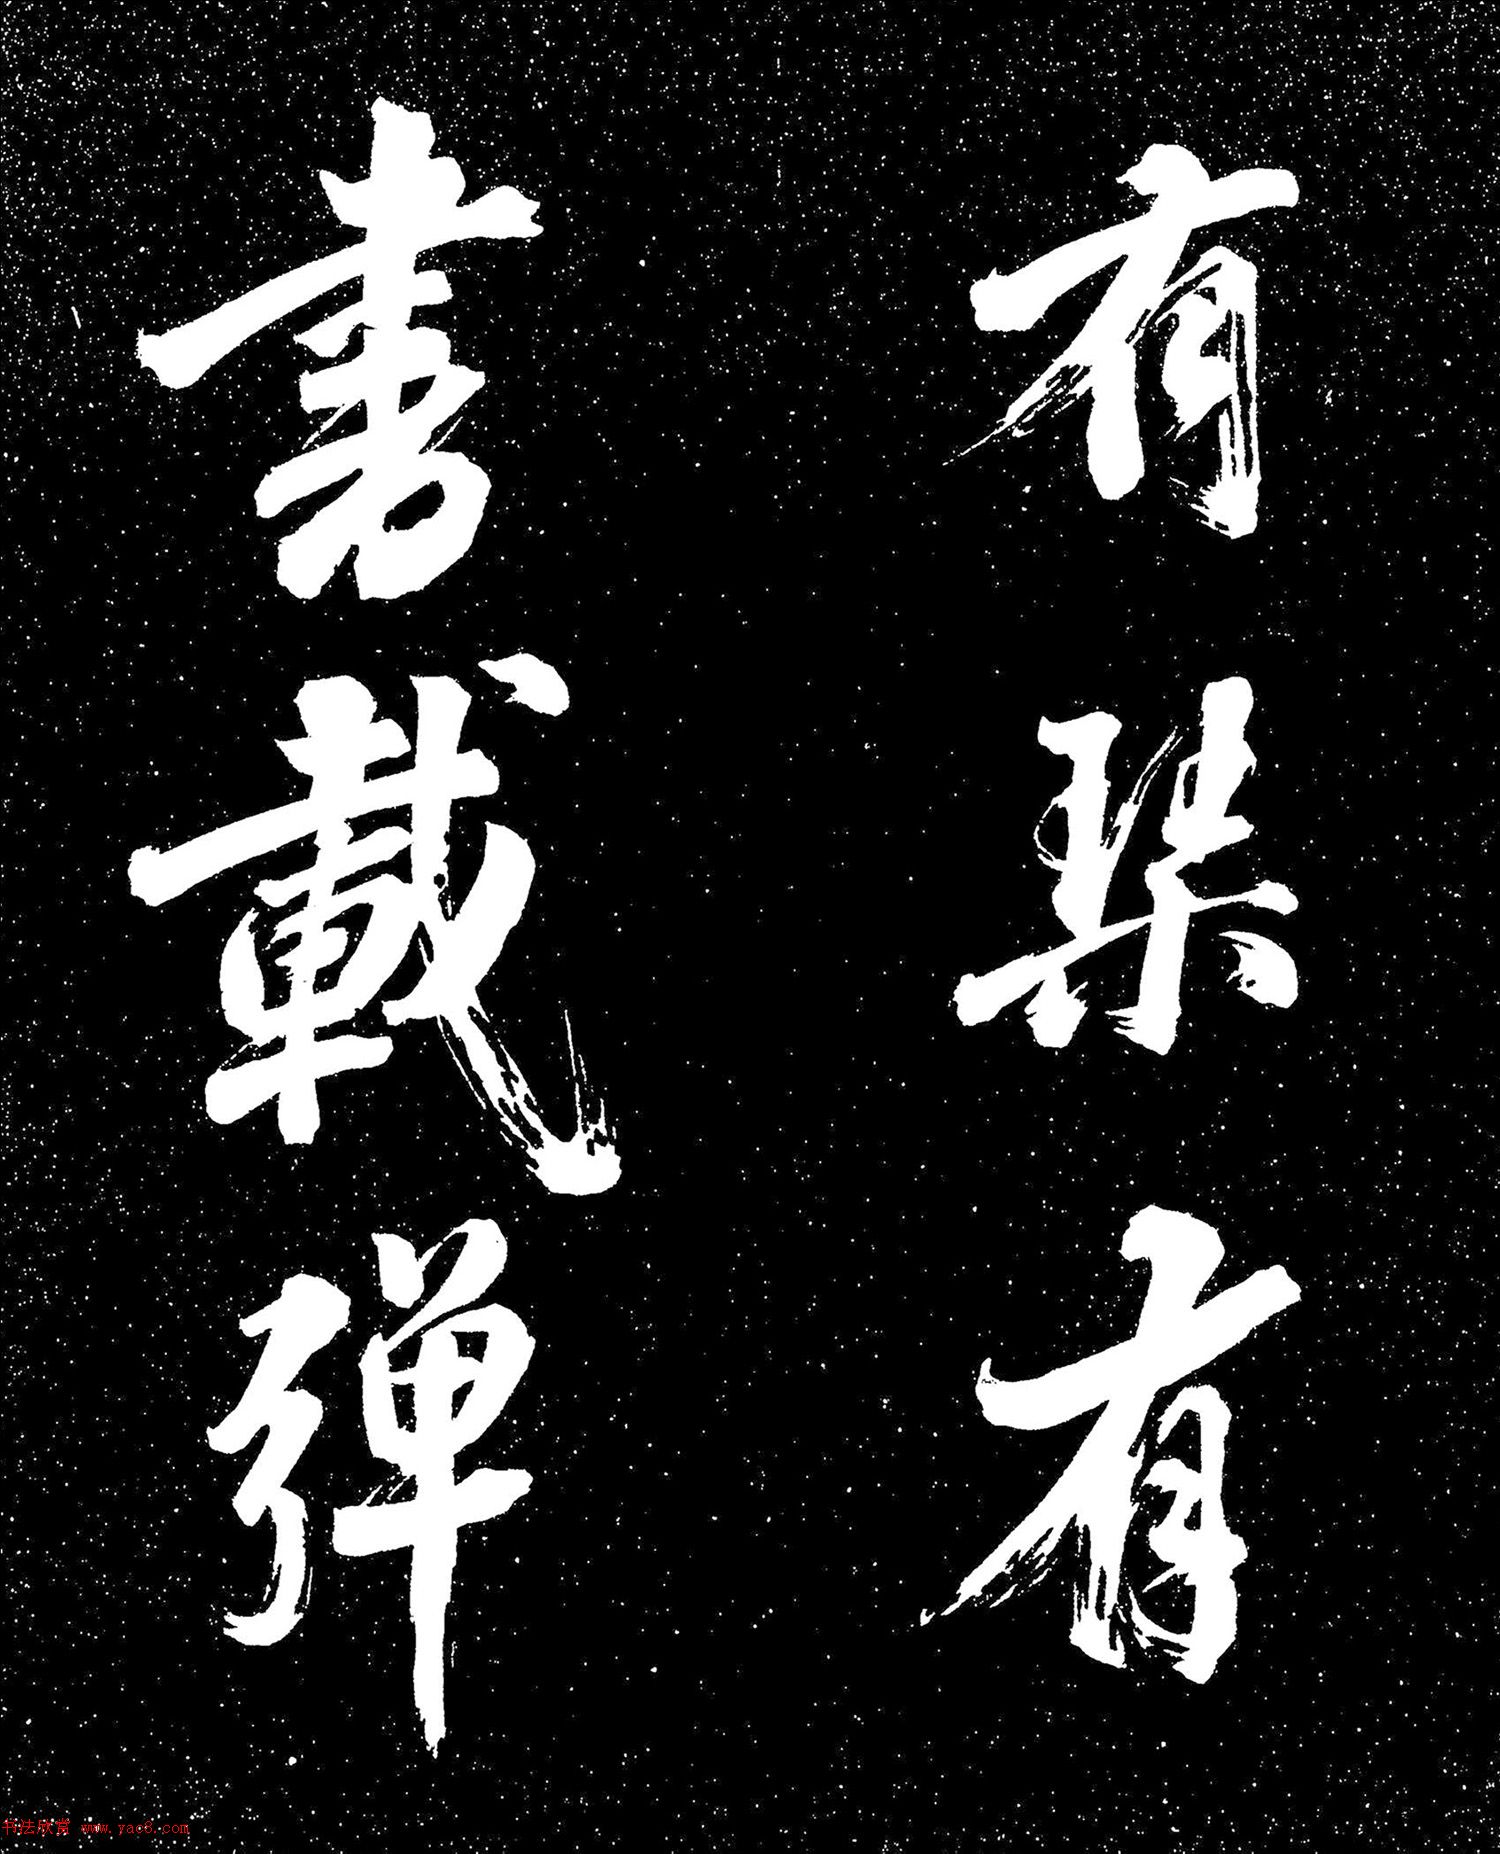 有琴有
書載彈
书法欣赏 www.yac8.com